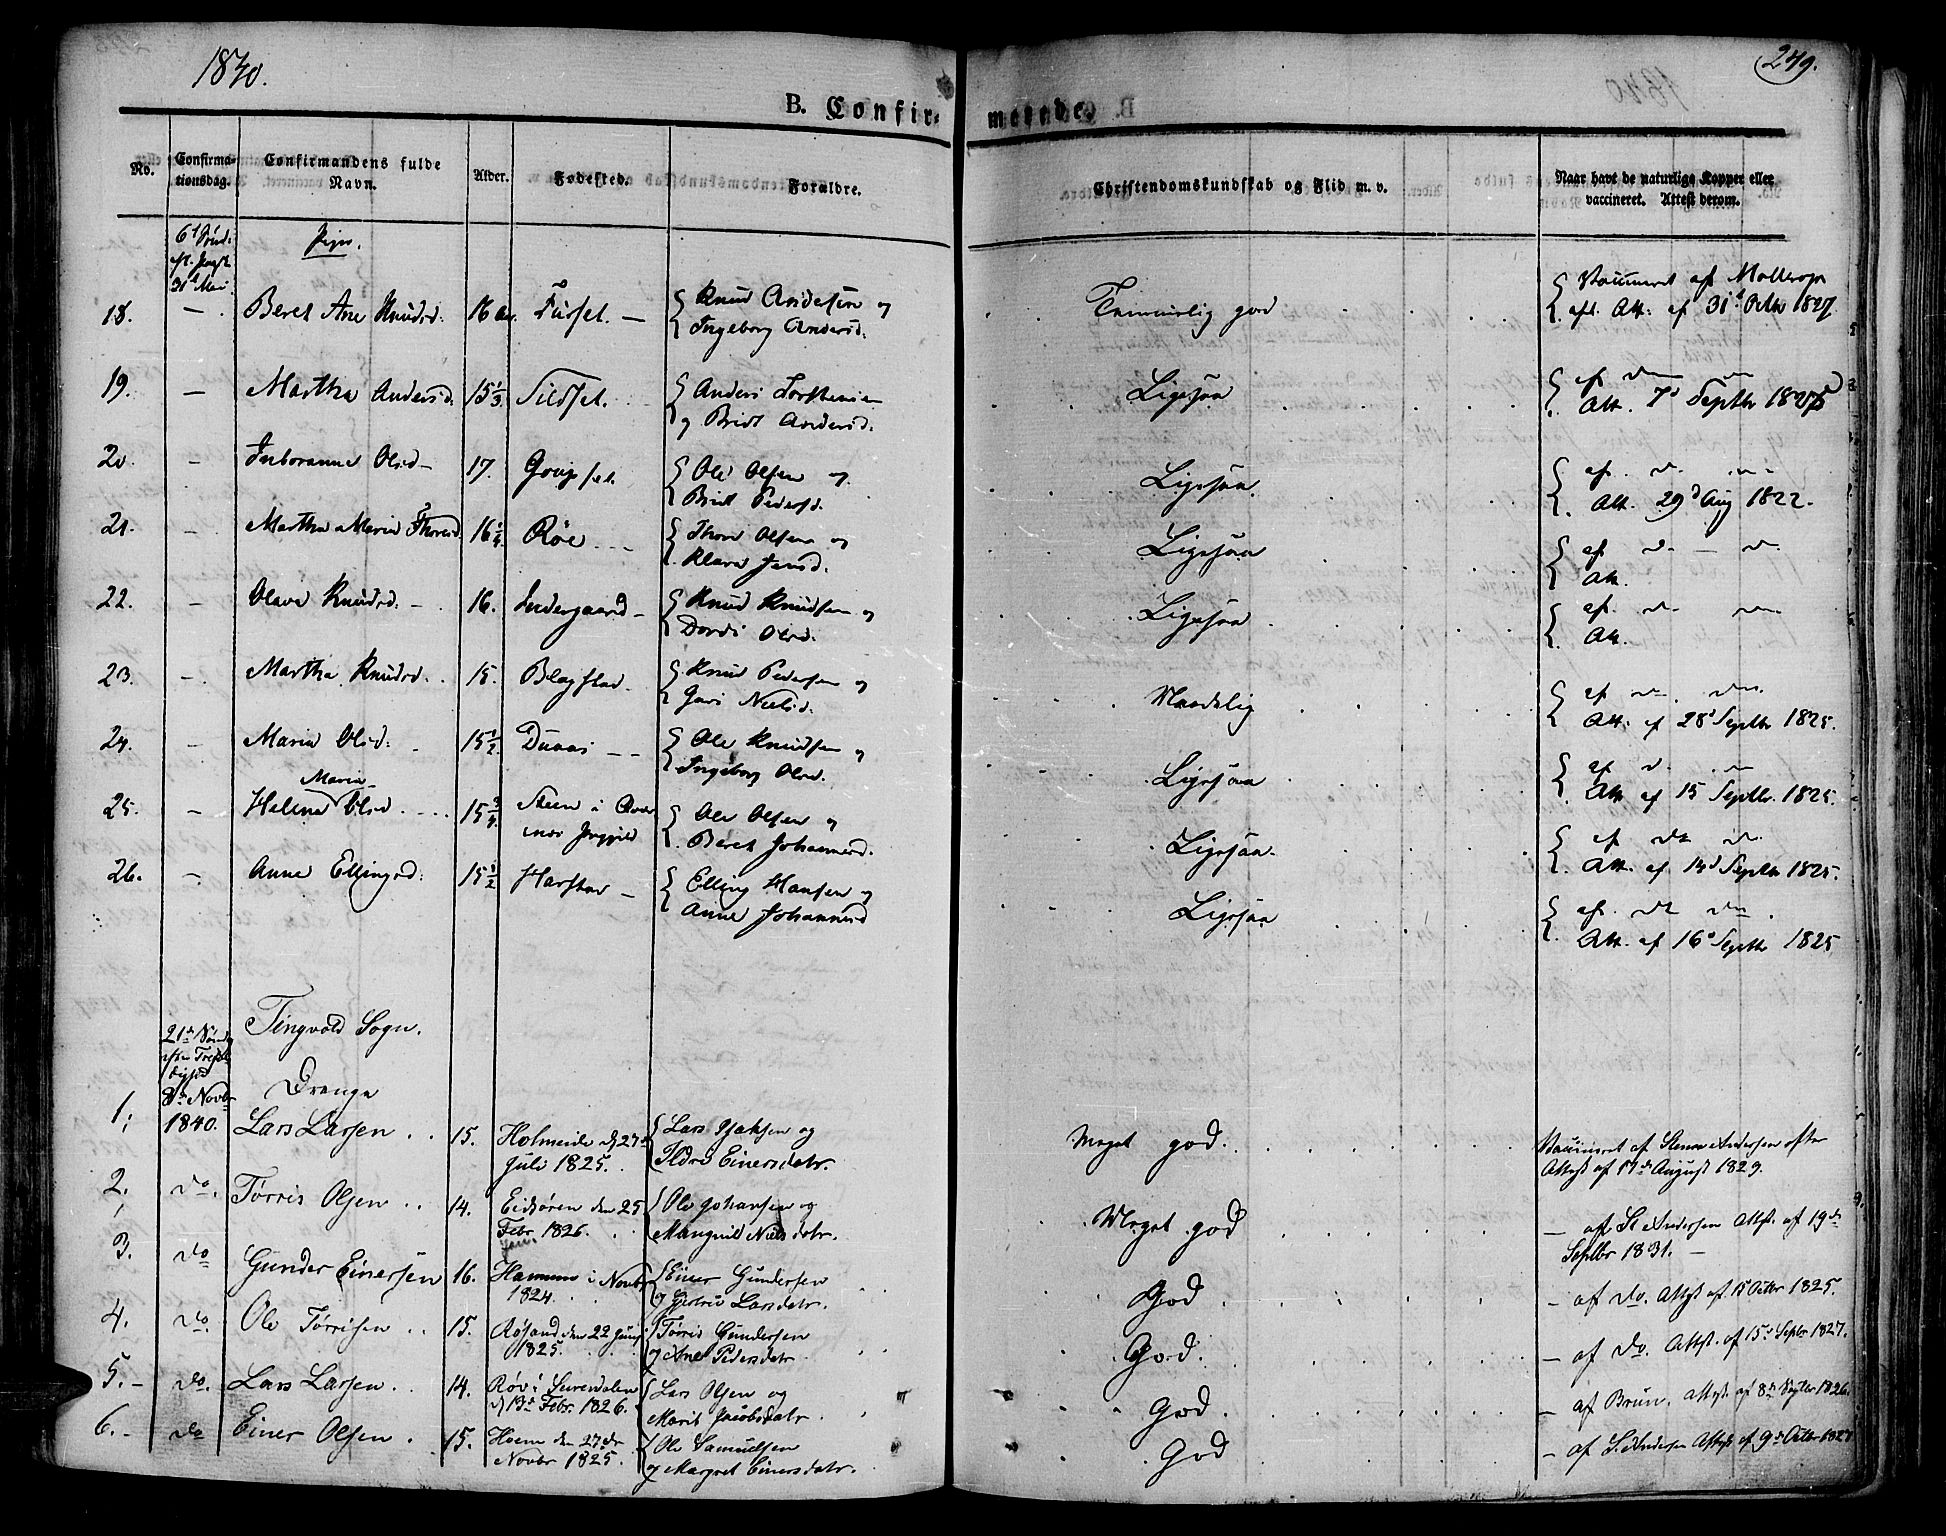 1840.
249.
B. Confir- merede.
No.
Confirmationsdag.
Confirmandens fulde Navn.
Alder.
Fødested.
Forældre.
Christendomskundskab og Flid m. v.
Naar havt de naturlige Kopper eller vaccineret. Attest derom.
31d Mai
18. — Beret Ane Knudsd. 16 Furset. — Knud Andersen og
Ingeborg Andersd.
god
Vaccineret af
Att: af 31d Octbr 1827.
19. — Martha Andersd. 15 1/3 Sildset. Anders
og Bridt Andersd.
Ligesaa
Att. 7d Septbr
20. — Olsd — 17. Ole Olsen og
Bridt Pedersd.
Ligesaa
af. d. —
Att. 29d Aug 1822.
21. — Martha Maria Thoresd. 16 1/4 Röe Thore Olsen og
Klara Jensd.
Ligesaa
af d. — d.
Att.
22. — Olava Knudsd. — 16. Indergaard — Knud Knudsen og
Dordi Olsd.
Ligesaa
af. d.
Att.
23. — Martha Knudsd. 15. Blagstad. Knud Pedersen og
Guri Nielsd.
Maadelig
Att: af 28d Septbr 1825.
24. — Maria Olsd. 15 1/2 Ole Knudsen og
Ingeborg Olsd.
Ligesaa
Att af 15 Septbr. 1825.
Maria
25. — Helena Olsd 15 3/4 Steen i Ole Olsen og
Beret Johannesd.
Ligesaa
Septbr 1825.
26. — Anne Ellingsd. 15 1/2 Harstad — Elling Hansen og
Anne Johannesd
Ligesaa
Att. af 16d Septbr 1825
Tingvold Sogn.
Drenge
8de Novbr
1840.
1. Lars Larsen 15. Holmeide d 27de
Juli 1825.
Lars Isaksen og
Einersdatr.
Meget god.
Vaccineret af Andersen efter
Attest af 17de August 1829.
2. do. Tørris Olsen 14. Eidsören den 25
Febr. 1826.
Ole Johansen og
Mangnild Nielsdatr.
Meget god
— af St Andersen Attst. af 19de
Septbr 1831. —
3. do Gunder Einersen 16. i Novbr
1824.
Einer Gundersen
og Larsdatr.
God
— af do. Attst af 15 Octbr 1825.
4. do Ole Tørrisen 15. Røsand den 22 Juni
1825.
Tørris Gundersen
og Ane Pedersdatr
God.
— af do. Attst. af 15d Septbr 1827.
5. — do. Lars Larsen 14. Røv i Surendalen
d 13de Febr. 1826.
Lars Olsen og
Marit Jacobsdatr.
God.
— af Brun. Attst. af
6. — do Einer Olsen 15. Hoem den 27de
Novbr 1825.
Ole Samuelsen
og Margret Einersdatr.
God
— af St. Andersen Attst af 9de Octbr